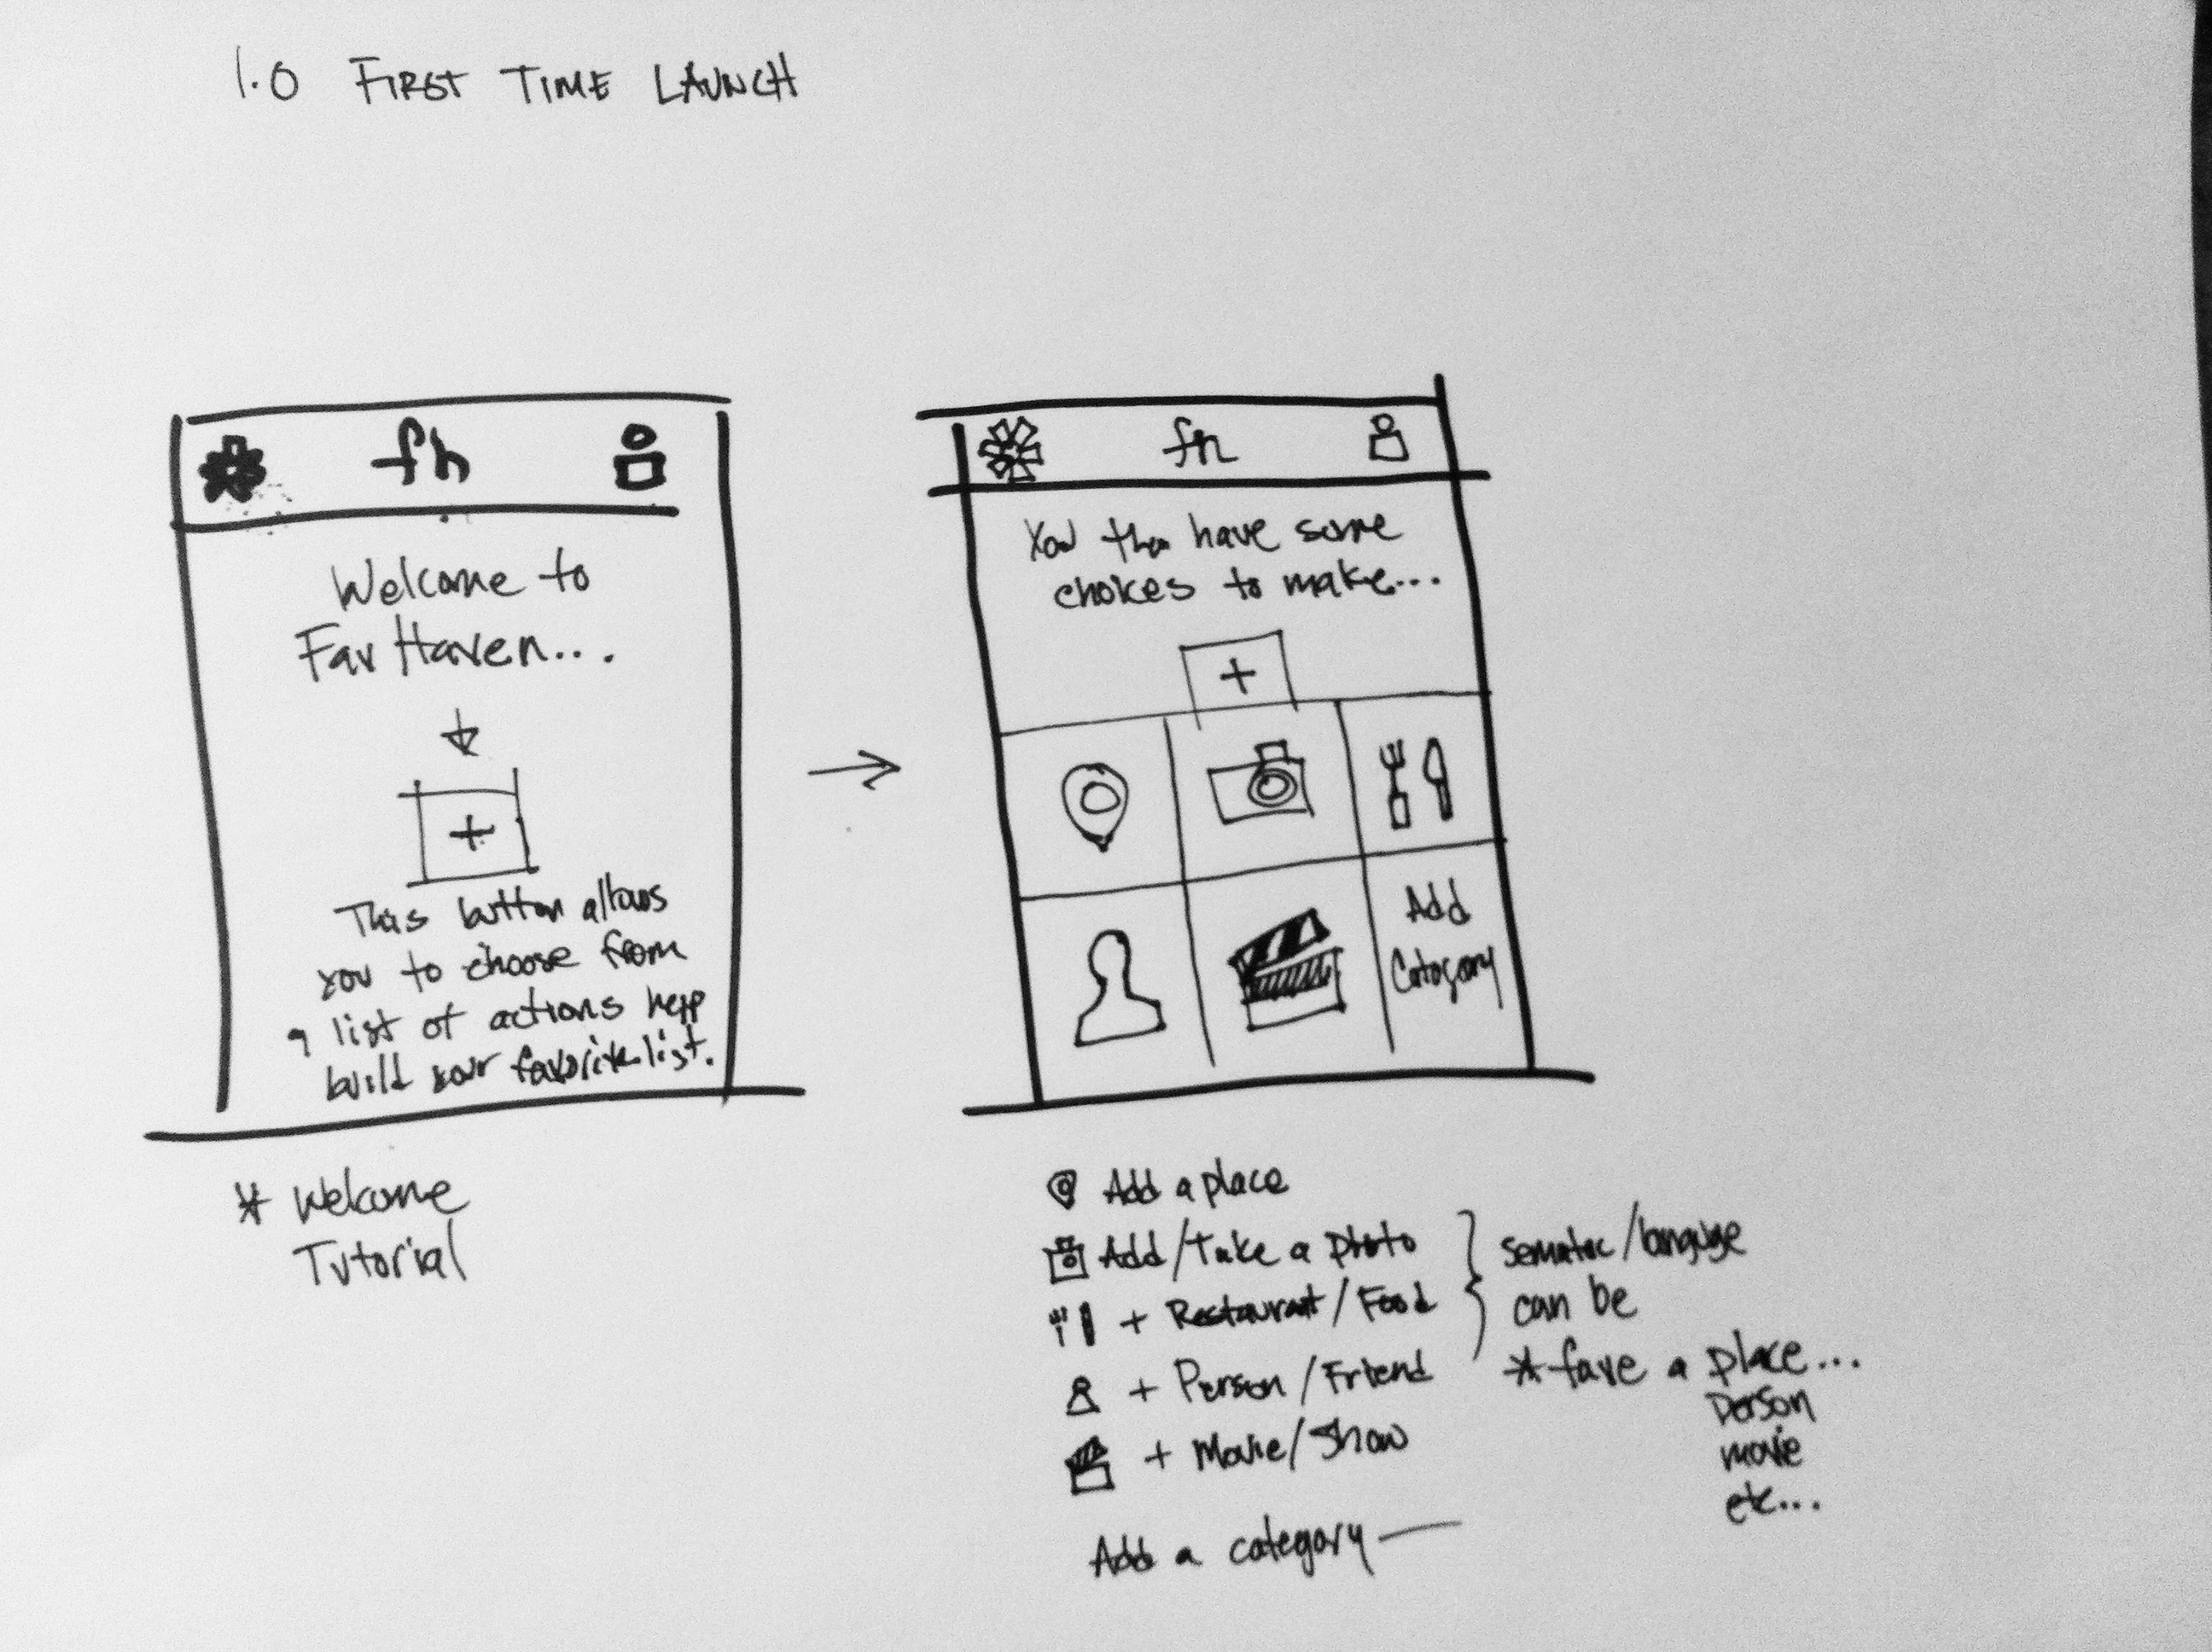 1.0 FIRST TIME LAUNCH
fh
Welcome to
Fav Haven...
+
This button allows
you to choose from
a list of actions help
build your favorite list.
* Welcome
Tutorial
fh
You then have some
choices to make...
+
Add
Catogory
Add a place
Add/Take a photo
+ Restaurant/Food
+ Person/Friend
+ Movie/Show
Add a category —
sematic/languge
can be
* fave a place...
person
movie
etc...